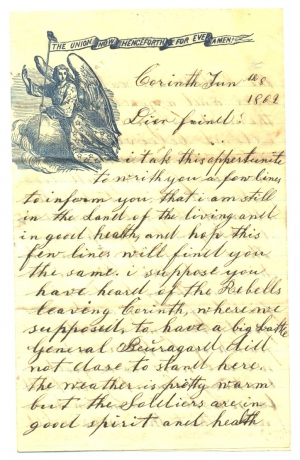 THE UNION NOW HENCEFORTH & FOR EVER AMEN!
Corinth Jun the 8
1862
Dear friend!
i take this opportunite
to write you a few lines
to inform you that i am still
in the Land of the living and
in good health, and hop this
few lines will find you
the same. i suppose you
have heard of the Rebells
leaving Corinth, where we
supposed, to have a big battle
General Beuragard did
not dare to stand here.
the weather is pretty warm
but the Soldiers are in
good spirit and health